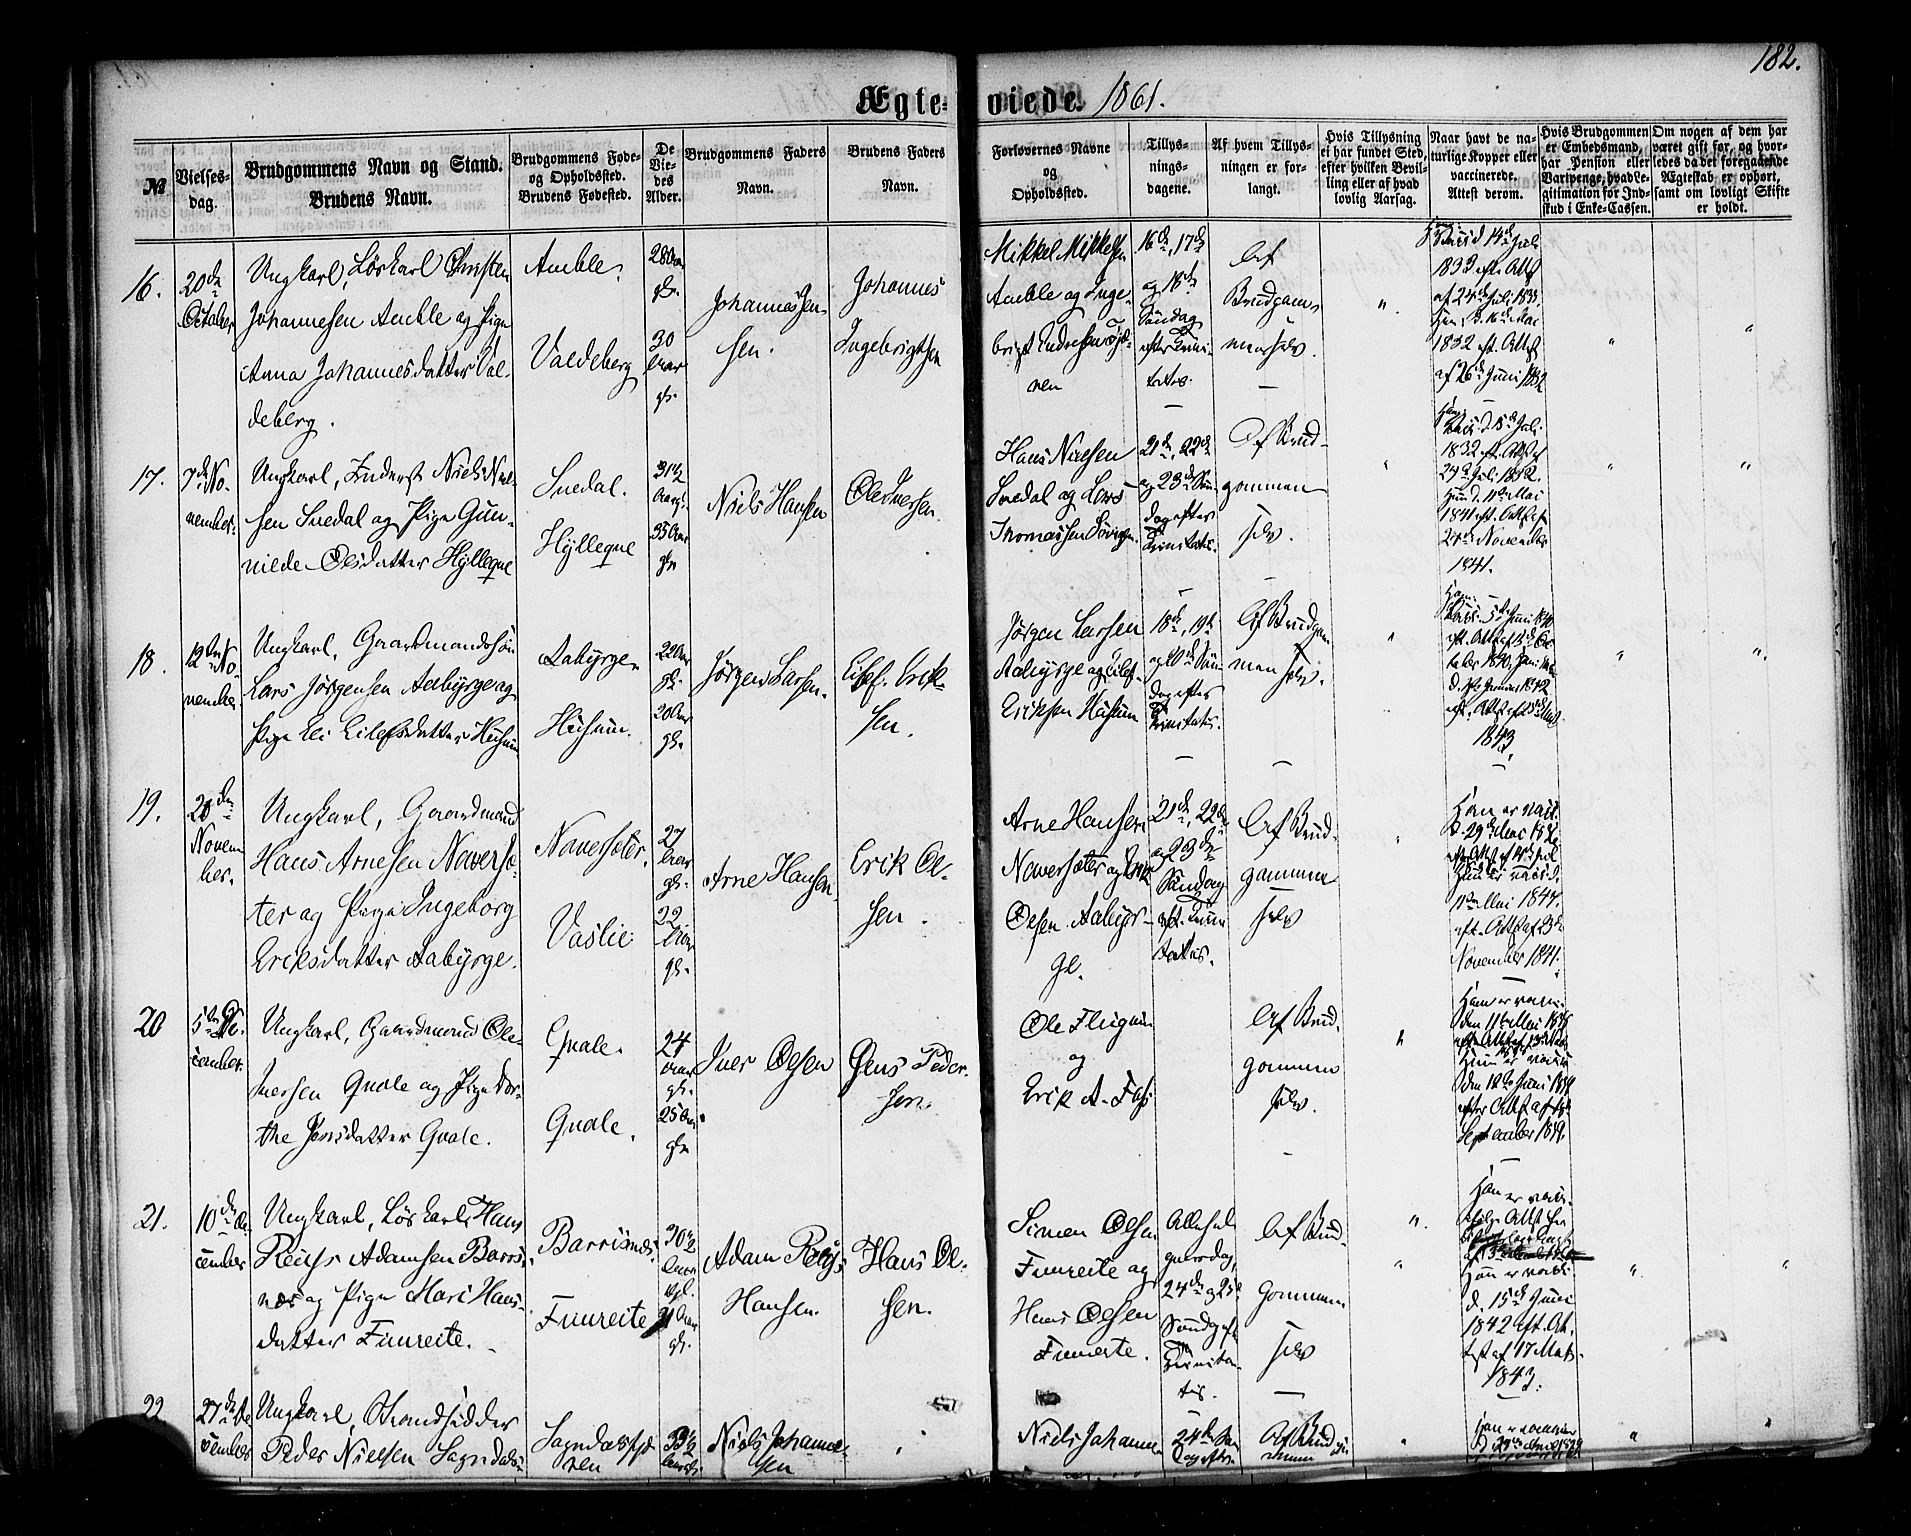 182.
Ægteviede. 1861.
№
Vielsesdag.
Brudgommens Navn og Stand.
Brudens Navn.
Brudgommens Føde-
og Opholdssted.
Brudens Fødested.
De
Vie-
des
Alder.
Brudgommens Faders
Navn.
Brudens Faders
Navn.
Forlovernes Navne
og
Opholdssted.
Tillys-
nings-
dagene.
Af hvem Tillys-
ningen er for-
langt.
Hvis Tillysning
ei har fundet Sted,
efter hvilken Bevil-
ling eller af hvad
lovlig Aarsag.
Naar havt de na-
turlige Kopper eller
vaccinerede.
Attest derom.
Hvis Brudgommen
er Embedsmand,
har Pension eller
Vartpenge, hvad Le-
gitimation for Ind-
skud i Enke-Cassen.
Om nogen af dem har
været gift før, og hvor-
ledes da det foregaaende
Ægteskab er ophørt,
samt om lovligt Skifte
er holdt.
16.
20de
October
Ungkarl, Løskarl Christen
Johannesen Amble og Pige
Anna Johannesdatter Val-
deberg.
Amble.
Valdeberg
28 Aar
gl.
30
Aar
gl.
Johannes Jen-
sen.
Johannes
Ingebrigtsen
Mikkel Mikkelsen
Amble og Inge-
brigt Endresen
16de, 17de
og 18de
Søndag
efter Trini-
tatis.
Af
Brudgom-
men selv.
14de Juli
1833 eft. Attst
af 24de Juli 1833.
Hun, d. 16de Mai
1832 eft. Attst
af 26de Juni 1832
17.
7de No-
vember.
Ungkarl, Inderst Niels Niel-
sen Snedal og Pige Gun-
nilde Olsdatter Hylleqve
Snedal.
Hylleqve
31½
Aar
35 Aar
gl.
Niels Hansen
Ole Iversen.
Hans Nielsen
Snedal og Lars
Thomassen
21de, 22de
og 23de Søn-
dag efter
Trinitatis.
Af Brud-
gommen
selv.
18de Juli
1832 eft. Attst af
24de Juli 1832.
Hun d. 11de Mai
1841 eft. Attst af
November
1841.
18.
12te No-
vember.
Ungkarl, Gaardmandssøn
Lars Jørgensen Aabyrge og
Pige Eli Eilefsdatter Husum
Aabyrge
Husum.
22 Aar
gl.
20 Aar
gl.
Jørgen Larsen.
Eilef Erik-
sen.
Jørgen Larsen
Aabyrge og Eilef
Eriksen Husum
18de, 19de
og 20de Søn-
dag efter
Trinitatis.
Af Brudgom-
men selv.
1843.
19.
20de
Novem-
ber.
Ungkarl, Gaardmand
Hans Arnesen Naversæ-
ter og Pige Ingeborg
Eriksdatter Aabyrge.
Naversæter.
Vaslie
27
Aar
gl.
22
Aar
gl.
Arne Hansen
Erik Ol-
sen.
Arne Hansen
Naversæter og Erik
Olsen Aabyr-
ge.
21de, 22de
og 23de
Søndag
eft. Trini-
tatis.
Af Brud-
gommen
selv
Han er vacc.
d. 29de Mai
11te Mai 1841.
eft. Attst af 23de
November 1841.
20
5te De-
cember.
Ungkarl, Gaardmand Ole
Iversen Qvale og Pige Dor-
the Jensdatter Qvale.
Qvale.
Qvale.
24
Aar
gl.
25 Aar
gl.
Iver Olsen
Jens Peder-
sen.
Ole Flugum
og
Erik A. Foss
Af Brud-
gommen
selv.
Han er vacc.
den 11te Mai
Hun er vacc.
den 18de Juni 1839
efter Attst af
September 1839.
21.
10de De-
cember
Ungkarl, Løskarl Hans
Reiss Adamsen Barsnæs
og Pige Mari Hans-
datter Fimreite.
Barsnæs.
Fimreite
30½
Aar
gl.
31 Aar
gl.
Adam Reiss
Hansen.
Hans Ol-
sen.
Simen Olsen
Fimreite og
Hans Olsen
Fimreite.
Allehel-
gensdag,
24de og 25de
Søndag eft.
Trinita-
tis.
Af Brud-
gommen
selv
Han er vacc.
Hun er vacc.
d. 15de Juni
1842 eft. At-
test af 17 Mai
1843.
22
27de De-
cember
Ungkarl, Strandsidder
Peder Nielsen Sogndals-
Sogndalsfjæ-
ren
33½
Niels Johanne-
sen
Niels Johannesen
24de Søn-
dag efter
Af Brud-
Han er vaccin.